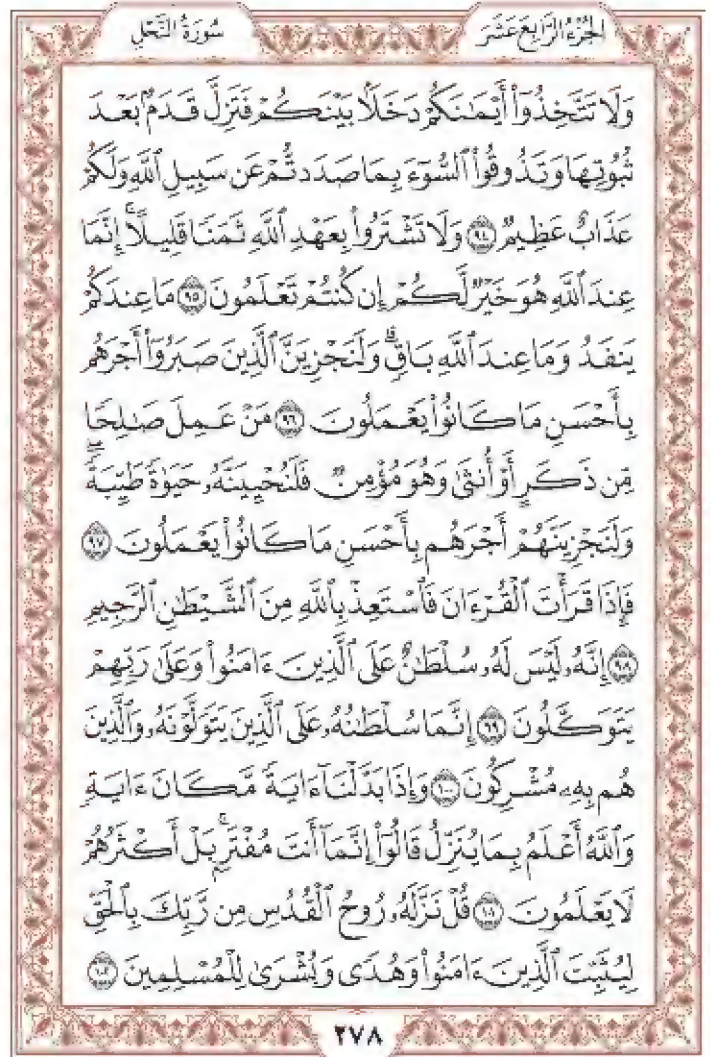 الجُزْءُ الرَّابِعَ عَشَرَ
سُورَةُ النَّحْلِ
وَلَا تَتَّخِذُوٓا۟ أَيْمَـٰنَكُمْ دَخَلًۢا بَيْنَكُمْ فَتَزِلَّ قَدَمٌۢ بَعْدَ
ثُبُوتِهَا وَتَذُوقُوا۟ ٱلسُّوٓءَ بِمَا صَدَدتُّمْ عَن سَبِيلِ ٱللَّهِ وَلَكُمْ
عَذَابٌ عَظِيمٌ ۝٩٤ وَلَا تَشْتَرُوا۟ بِعَهْدِ ٱللَّهِ ثَمَنًا قَلِيلًا ۚ إِنَّمَا
عِندَ ٱللَّهِ هُوَ خَيْرٌ لَّكُمْ إِن كُنتُمْ تَعْلَمُونَ ۝٩٥ مَا عِندَكُمْ
يَنفَدُ وَمَا عِندَ ٱللَّهِ بَاقٍ ۗ وَلَنَجْزِيَنَّ ٱلَّذِينَ صَبَرُوٓا۟ أَجْرَهُم
بِأَحْسَنِ مَا كَانُوا۟ يَعْمَلُونَ ۝٩٦ مَنْ عَمِلَ صَـٰلِحًا
مِّن ذَكَرٍ أَوْ أُنثَىٰ وَهُوَ مُؤْمِنٌ فَلَنُحْيِيَنَّهُۥ حَيَوٰةً طَيِّبَةً ۖ
وَلَنَجْزِيَنَّهُمْ أَجْرَهُم بِأَحْسَنِ مَا كَانُوا۟ يَعْمَلُونَ ۝٩٧
فَإِذَا قَرَأْتَ ٱلْقُرْءَانَ فَٱسْتَعِذْ بِٱللَّهِ مِنَ ٱلشَّيْطَـٰنِ ٱلرَّجِيمِ
۝٩٨ إِنَّهُۥ لَيْسَ لَهُۥ سُلْطَـٰنٌ عَلَى ٱلَّذِينَ ءَامَنُوا۟ وَعَلَىٰ رَبِّهِمْ
يَتَوَكَّلُونَ ۝٩٩ إِنَّمَا سُلْطَـٰنُهُۥ عَلَى ٱلَّذِينَ يَتَوَلَّوْنَهُۥ وَٱلَّذِينَ
هُم بِهِۦ مُشْرِكُونَ ۝١٠٠ وَإِذَا بَدَّلْنَآ ءَايَةً مَّكَانَ ءَايَةٍ ۙ
وَٱللَّهُ أَعْلَمُ بِمَا يُنَزِّلُ قَالُوٓا۟ إِنَّمَآ أَنتَ مُفْتَرٍۭ ۚ بَلْ أَكْثَرُهُمْ
لَا يَعْلَمُونَ ۝١٠١ قُلْ نَزَّلَهُۥ رُوحُ ٱلْقُدُسِ مِن رَّبِّكَ بِٱلْحَقِّ
لِيُثَبِّتَ ٱلَّذِينَ ءَامَنُوا۟ وَهُدًى وَبُشْرَىٰ لِلْمُسْلِمِينَ ۝١٠٢
٢٧٨